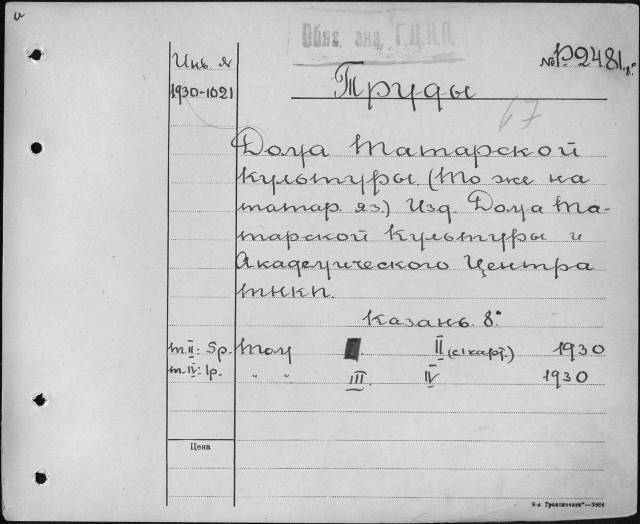 Обяз. экз. Г.Ц.К.П.
Инв. №
№ P.2481.8°
1930-1021
Труды
67
Дома Татарской
Культуры. (То же на
татар. яз.) Изд. Дома Та-
тарской Культуры и
Академического Центра
ТНКП.
Казань. 8°
т. II: 5р. Том II (с 1 карт.) 1930
т. IV: 1р. " " III. IV 1930
Цена